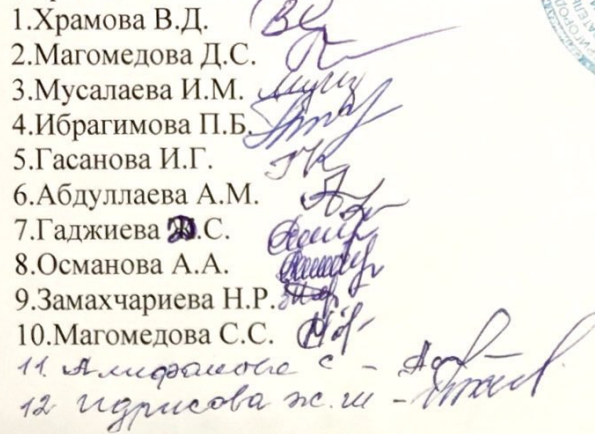 1.Храмова В.Д.
2.Магомедова Д.С.
3.Мусалаева И.М.
4.Ибрагимова П.Б.
5.Гасанова И.Г.
6.Абдуллаева А.М.
7.Гаджиева .С.
8.Османова А.А.
9.Замахчариева Н.Р.
10.Магомедова С.С.
11. с -
12 Идрисова ж.ш -